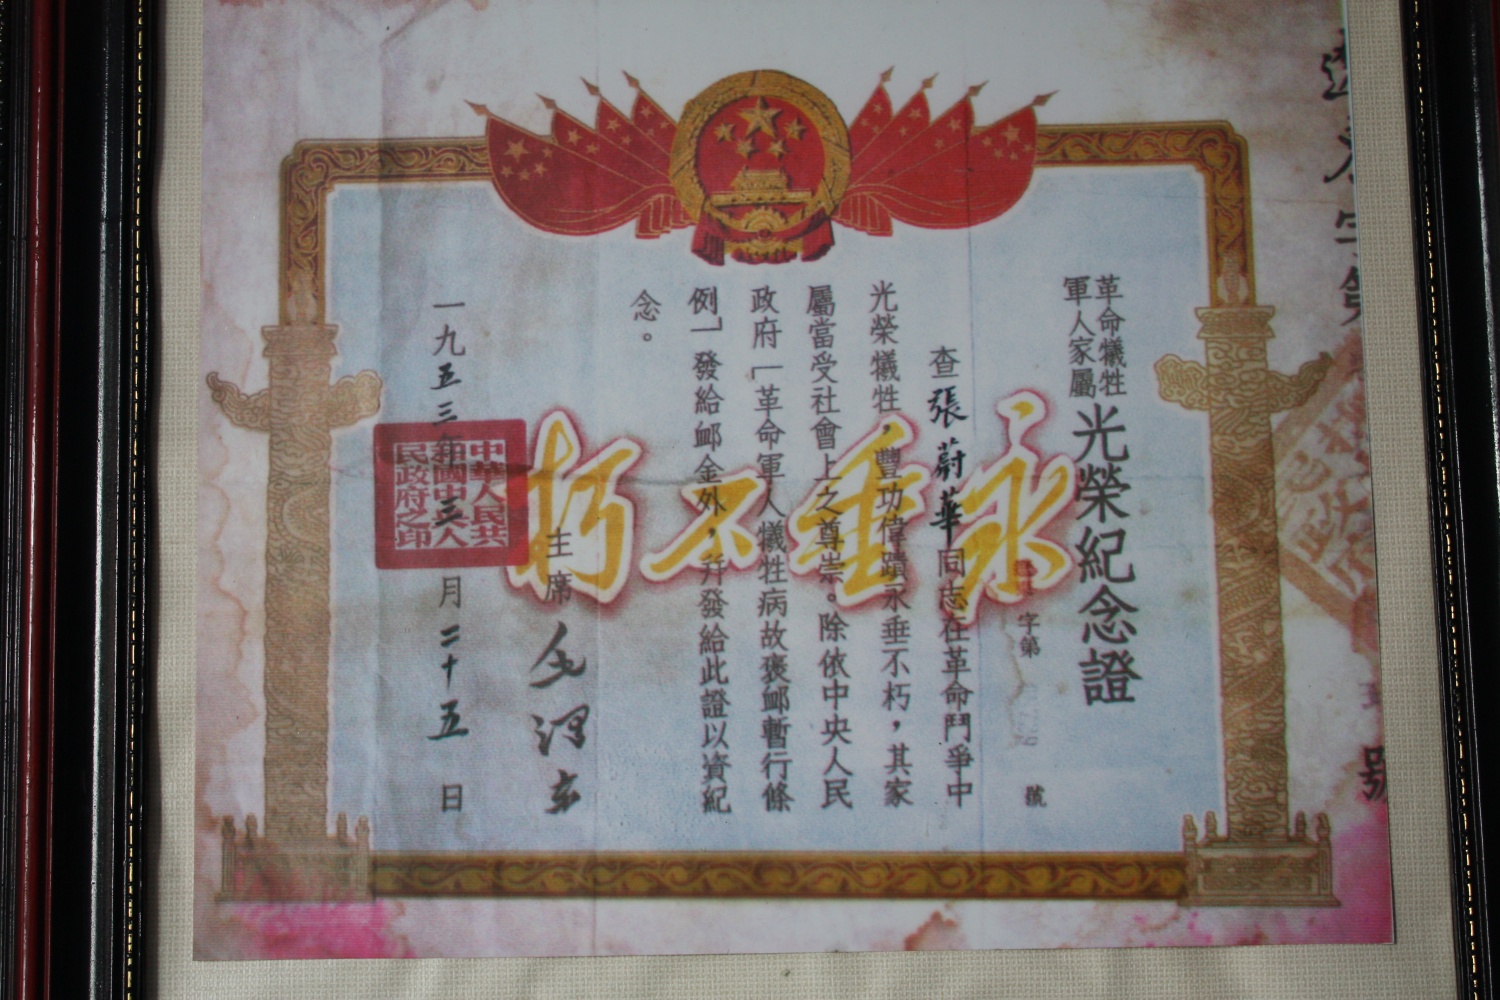 革命犧牲
軍人家屬
光榮紀念證
字第
號
查張蔚華同志在革命鬥爭中
光榮犧牲，豐功偉蹟永垂不朽，其家
屬當受社會上之尊崇。除依中央人民
政府「革命軍人犧牲病故褒卹暫行條
例」發給卹金外，幷發給此證以資紀
念。
主席 毛澤东
一九五三年三月二十五日
永垂不朽
中華人民共
和國中央人
民政府之印
號